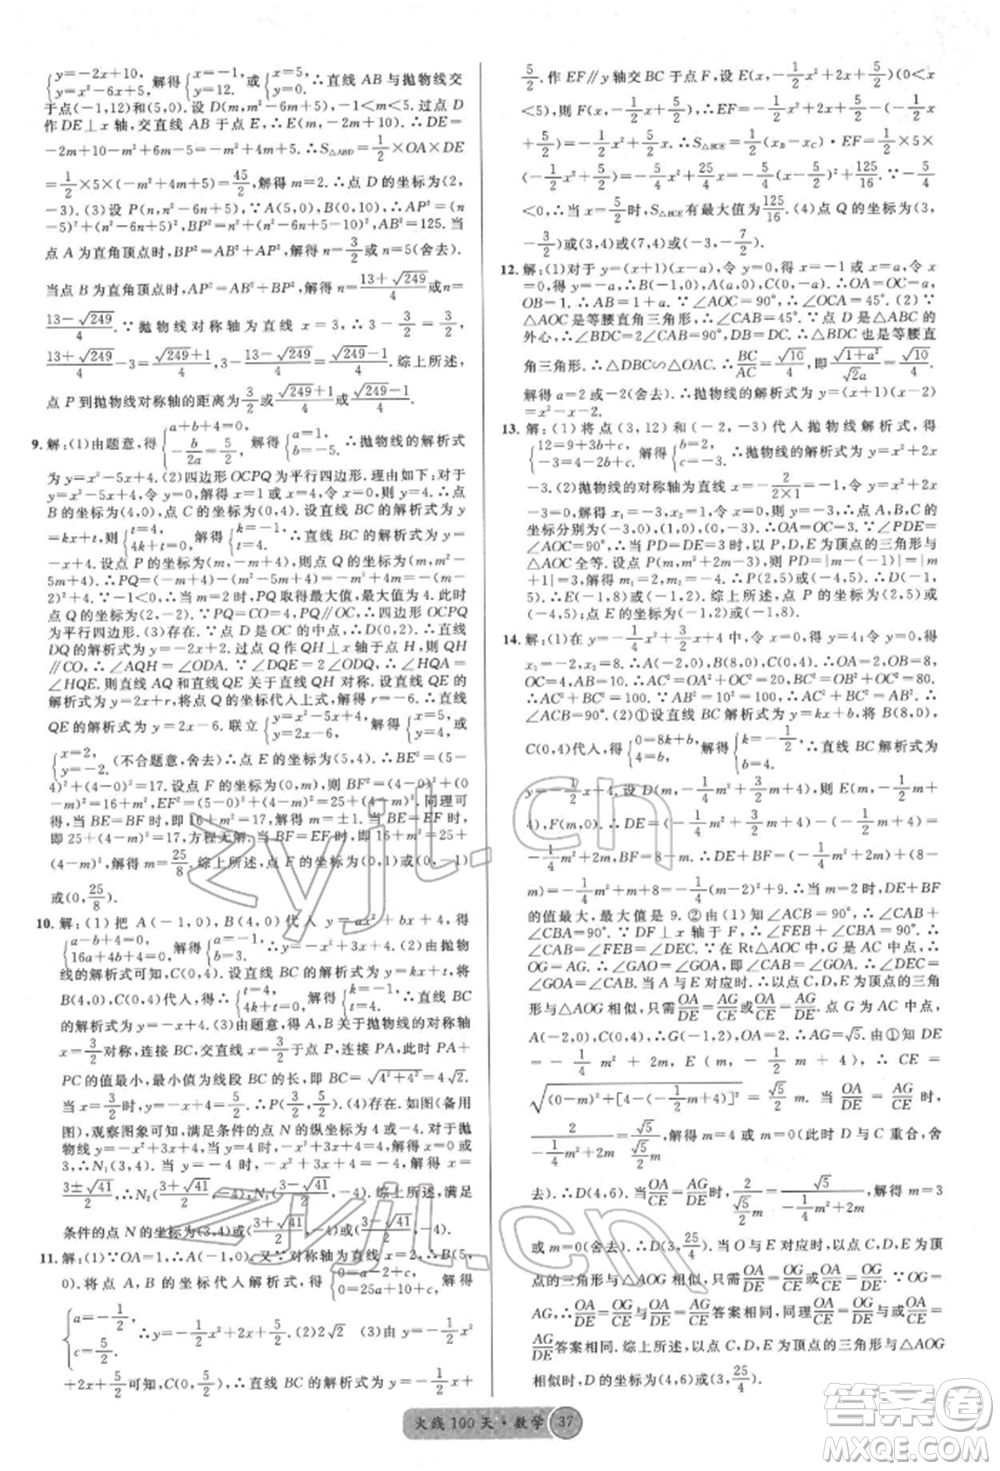 {y=-2x+10, y=x²-6x+5, 解得{x=-1, y=12 或{x=5, y=0. ∴直线 AB 与抛物线交
于点(-1,12)和(5,0). 设 D(m,m²-6m+5),-1<m<5. 过点 D
作 DE⊥x 轴,交直线 AB 于点 E,∴E(m,-2m+10). ∴DE=
-2m+10-m²+6m-5=-m²+4m+5. ∴S△ABD=1/2×OA×DE
=1/2×5×(-m²+4m+5)=45/2. 解得 m=2. ∴点 D 的坐标为(2,
-3). (3)设 P(n,n²-6n+5),∵A(5,0),B(0,10),∴AP²=(n-
5)²+(n²-6n+5)²,BP²=n²+(n²-6n+5-10)²,AB²=125. 当
点 A 为直角顶点时,BP²=AB²+AP²,解得 n=3/2或 n=5(舍去).
当点 B 为直角顶点时,AP²=AB²+BP²,解得 n=(13+√249)/4或 n=
(13-√249)/4. ∵抛物线对称轴为直线 x=3,∴3-3/2=3/2,
(13+√249)/4-3=(√249+1)/4,3-(13-√249)/4=(√249-1)/4. 综上所述,
点 P 到抛物线对称轴的距离为3/2或(√249+1)/4或(√249-1)/4.
9. 解:(1)由题意,得{a+b+4=0, -b/2a=5/2, 解得{a=1, b=-5. ∴抛物线的解析式
为 y=x²-5x+4. (2)四边形 OCPQ 为平行四边形. 理由如下:对于
y=x²-5x+4,令 y=0,解得 x=1或 x=4,令 x=0,则 y=4. ∴点
B 的坐标为(4,0),点 C 的坐标为(0,4). 设直线 BC 的解析式为 y
=kx+t,则{t=4, 4k+t=0, 解得{k=-1, t=4. ∴直线 BC 的解析式为 y=-x
+4. 设点 P 的坐标为(m,-m+4),则点 Q 的坐标为(m,m²-
5m+4). ∴PQ=-m+4-(m²-5m+4)=-m²+4m=-(m-
2)²+4. ∵-1<0,∴当 m=2时,PQ 取得最大值,最大值为4. 此时
点 Q 的坐标为(2,-2). ∵PQ=CO=4,PQ∥OC,∴四边形 OCPQ
为平行四边形. (3)存在. ∵点 D 是 OC 的中点,∴点 D(0,2). ∴直线
DQ 的解析式为 y=-2x+2. 过点 Q 作 QH⊥x 轴于点 H,则 QH∥
CO,故∠AQH=∠ODA. ∵∠DQE=2∠ODQ,∴∠HQA=
∠HQE. 则直线 AQ 和直线 QE 关于直线 QH 对称. 设直线 QE 的
解析式为 y=2x+r,将点 Q 的坐标代入上式,解得 r=-6. ∴直线
QE 的解析式为 y=2x-6. 联立{y=x²-5x+4, y=2x-6, 解得{x=5, y=4 或
{x=2, y=-2 (不合题意,舍去)∴点 E 的坐标为(5,4). ∴BE²=(5-
4)²+(4-0)²=17. 设点 F 的坐标为(0,m),则 BF²=(4-0)²+(0
-m)²=16+m²,EF²=(5-0)²+(4-m)²=25+(4-m)². 同理可
得,当 BE=BF 时,即16+m²=17,解得 m=±1. 当 BE=EF 时,
即25+(4-m)²=17,方程无解. 当 BF=EF 时,即16+m²=25+
(4-m)²,解得 m=25/8. 综上所述,点 F 的坐标为(0,1)或(0,-1)
或(0,25/8).
10. 解:(1)把 A(-1,0),B(4,0)代入 y=ax²+bx+4,得
{a-b+4=0, 16a+4b+4=0, 解得{a=-1, b=3. ∴y=-x²+3x+4. (2)由抛物
线的解析式可知,C(0,4). 设直线 BC 的解析式为 y=kx+t,将
B(4,0),C(0,4)代入,得{t=4, 4k+t=0, 解得{k=-1, t=4. ∴直线 BC 的解析
式为 y=-x+4. (3)由题意,得 A,B 关于抛物线的对称轴
x=3/2对称,连接 BC,交直线 x=3/2于点 P,连接 PA,此时 PA+
PC 的值最小,最小值为线段 BC 的长度. ∴BC=√(4²+4²)=4√2.
当 x=3/2时,y=-x+4=5/2. ∴P(3/2,5/2). (4)存在. 如图(备用
图),观察图象可知,满足条件的点 N 的纵坐标为4或-4. 对于抛
物线 y=-x²+3x+4,当 y=4时,x²-3x=0,解得 x=0或 x=
3,∴N₁(3,4). 当 y=-4时,x²-3x-8=0,解得 x=
(3±√41)/2,∴N₂((3+√41)/2,-4),N₃((3-√41)/2,-4). 综上所述,满足
条件的点 N 的坐标为(3,4)或((3+√41)/2,-4)或((3-√41)/2,-4).
11. 解:(1)∵OA=1,∴A(-1,0). 又∵对称轴为直线 x=2,∴B(5,
0). 将点 A,B 的坐标代入解析式,得{0=a-2+c, 0=25a+10+c, 解得
{a=-1/2, c=5/2. ∴y=-1/2x²+2x+5/2. (2)2√2 (3)由 y=-1/2x²
+2x+5/2可知,C(0,5/2). ∴直线 BC 的解析式为 y=-1/2x+
5/2. 作 EF∥y 轴交 BC 于点 F,设 E(x,-1/2x²+2x+5/2)(0<x
<5),则 F(x,-1/2x+5/2). ∴EF=-1/2x²+2x+5/2-(-1/2x
+5/2)=-1/2x²+5/2x. ∴S△BCE=1/2(xB-xC)·EF=1/2×5×
(-1/2x²+5/2x)=-5/4x²+25/4x=-5/4(x-5/2)²+125/16. ∵-5/4
<0,∴当 x=5/2时,S△BCE有最大值为125/16. (4)点 Q 的坐标为(3,
-3/2)或(7,4)或(3,-7/2).
12. 解:(1)对于 y=(x+1)(x-a),令 y=0,得 x=-1或 a,令
x=0,则 y=-a. ∴B(-1,0),A(a,0),C(0,-a). ∴OA=a,
OB=1. ∴AB=1+a. ∵a>0,∴OC=OA=a. (2)∵
△AOC 是等腰直角三角形,∴∠OAC=45°. ∵点 D 是△ABC 的
外心,∴∠BDC=2∠CAB=90°,DB=DC. ∴△BDC 也是等腰直
角三角形. ∴△DBC∽△OAC. ∴BC/AC=√10/4,即√(1+a²)/(√2a)=√10/4.
解得 a=2或 a=-2(舍去). ∴抛物线的解析式为 y=(x+1)(x-2)
=x²-x-2.
13. 解:(1)将点(3,12)和(-2,-3)代入抛物线解析式,得
{12=9+3b+c, -3=4-2b+c. 解得{b=2, c=-3. ∴抛物线的解析式为 y=x²+2x
-3. (2)抛物线的对称轴为直线 x=-2/(2×1)=-1. 令 y=0,解得
x₁=-3,x₂=1,令 x=0,解得 y=-3. ∴点 A,B,C 的
坐标分别为(-3,0),(1,0),(0,-3). ∴OA=OC=3. ∵∠PDE=
∠AOC=90°,∴当 PD=DE=3时,以 P,D,E 为顶点的三角形与
△AOC 全等. 设点 P(m,n),由题意,得 PD=|m-(-1)|=
3. 解得 m₁=2,m₂=-4. ∴n=2²+2×2-3=5. ∴点 P 的坐标为(2,5)或
(-4,5);点 E 的坐标为(-1,2)或(-1,8).
14. 解:(1)在 y=-1/4x²+3/2x+4中,令 x=0,得 y=4,令 y=0,得
x₁=-2,x₂=8. ∴A(-2,0),B(8,0),C(0,4). ∴OA=2,OB=8,
OC=4,AB=10. ∴AC²=OA²+OC²=20,BC²=OB²+
OC²=80. ∴AC²+BC²=100. ∵AB²=100. ∴AC²+BC²=AB².
∴∠ACB=90°. (2)①设直线 BC 解析式为 y=kx+b,将 B(8,0),
C(0,4)代入,得{0=8k+b, 4=b, 解得{k=-1/2, b=4. ∴直线 BC 解析式为
y=-1/2x+4. 设 D(m,-1/4m²+3/2m+4),则 E(m,-1/2m+
4),F(m,0). ∴DE=(-1/4m²+3/2m+4)-(-1/2m+4)=
-1/4m²+2m,BF=8-m. ∴DE+BF=(-1/4m²+2m)+(8-
m)=-1/4m²+m+8=-1/4(m-2)²+9. ∴当 m=2时,DE+BF
的值最大,最大值为9. ②由(1)知∠ACB=90°,∴∠CAB+
∠CBA=90°. ∵DF⊥x 轴于点 F,∴∠FEB+∠CBA=90°.
∴∠CAB=∠FEB=∠DEC. ∵在 Rt△AOC 中,G 是 AC 中点,
∴OG=AG. ∴∠OAG=∠GOA,即∠CAB=∠GOA.
∴∠DEC=∠GOA. ∴当 A 与 E 对应时,∴以点 C,D,E 为顶点的三角
形与△AOG 相似,只需OA/CE=OG/DE或OA/DE=OG/CE. ∵点 G 为 AC 中点,
A(-2,0),C(0,4),∴G(-1,2),OG=√5. ∴AG=√5. 由①知 DE=
-1/4m²+2m,E(m,-1/2m+4). ∴CE=
√((0-m)²+[4-(-1/2m+4)]²)=√5/2m. 当OA/DE=AG/CE时,
2/(-1/4m²+2m)=√5/(√5/2m). 解得 m=4或 m=0(此时 D 与 C 重合,舍
去). ∴D(4,6). 当OA/CE=AG/DE时,2/(√5/2m)=√5/(-1/4m²+2m). 解得 m=3
或 m=0(舍去). ∴D(3,25/4). ∵在△AOG 中,AG=OG,
∴OA/CE=OG/DE与OA/CE=AG/DE答案相同,同理OA/DE=OG/CE与
OA/DE=AG/CE答案也相同. 综上所述,以 C,D,E 为顶点的三角形与△AOG
相似时,D 的坐标为(4,6)或(3,25/4).
火线 100 天·数学 37
zyjl.cn
zyjl.cn
答案圈
MXQE.COM